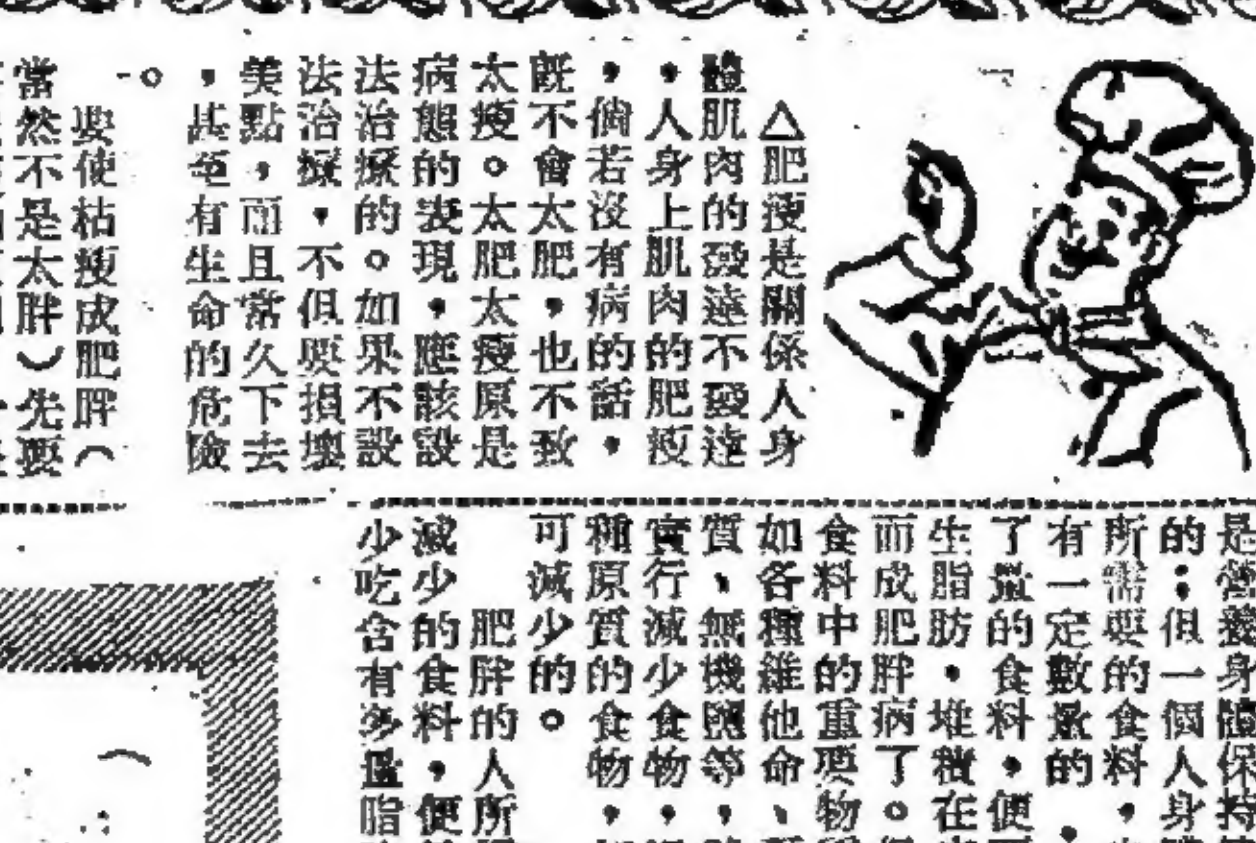 △肥瘦是關係人身
體肌肉的發達不發達
，人身上肌肉的肥瘦
，倘若沒有病的話，
既不會太肥，也不致
太瘦。太肥太瘦原是
病態的表現，應該設
法治療的。如果不設
法治療，不但要損壞
美點，而且常久下去
，甚至有生命的危險
。
要使枯瘦成肥胖（
當然不是太胖）先要
是營養身體保持
的；但一個人身
所需要的食料，
有一定數量的，
了量的食料，便
生脂肪，堆積在
而成肥胖病了。
食料中的重要物
如各種維他命、
質、無機鹽等，
實行減少食物，
種原質的食物，
可減少的。
肥胖的人所
減少的食料，便
少吃含有多量脂